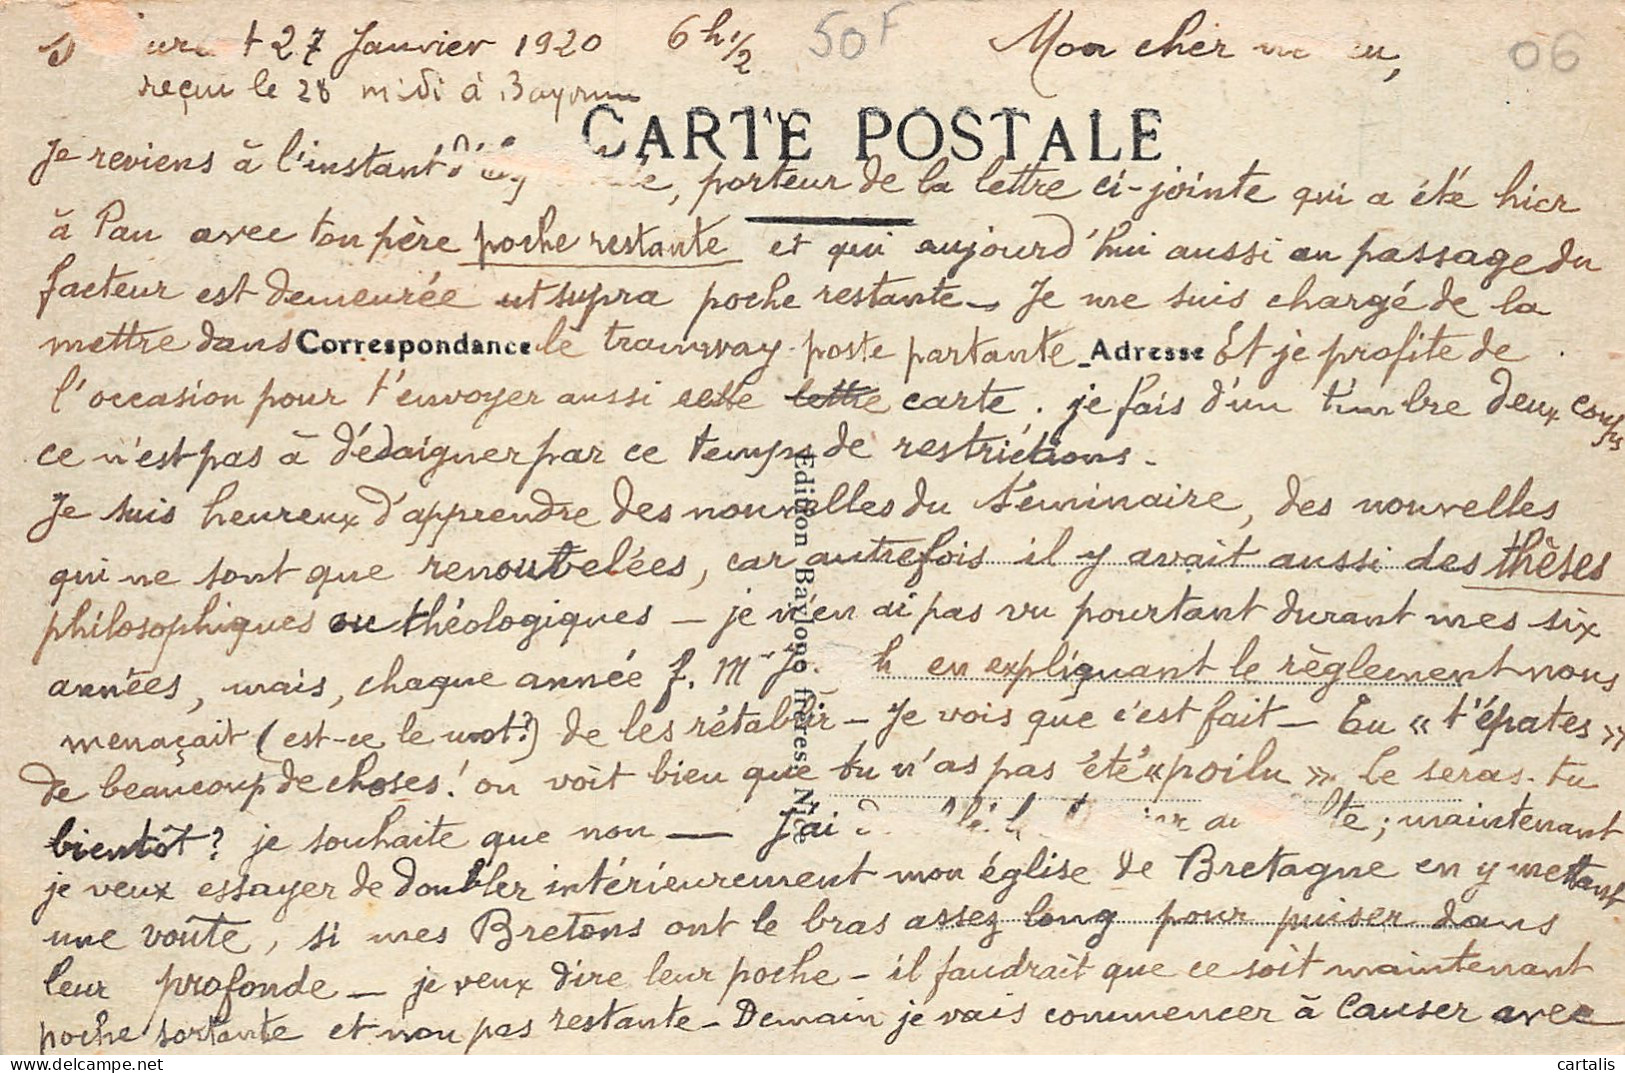 27 Janvier 1920 6 h 1/2 50F Mon cher 06
reçu le 28 midi à Bayonne
CARTE POSTALE
Je reviens à l'instant porteur de la lettre ci-jointe qui a été hier
à Pau avec ton père poche restante et qui aujourd'hui aussi au passage du
facteur est demeurée ut supra poche restante - Je me suis chargé de la
mettre dans Correspondance le tramway poste partante - Adresse Et je profite de
l'occasion pour t'envoyer aussi cette lettre carte. je fais d'un timbre deux coups
ce n'est pas à dédaigner par ce temps de restrictions -
Je suis heureux d'apprendre des nouvelles du Séminaire, des nouvelles
qui ne sont que renouvelées, car autrefois il y avait aussi des thèses
philosophiques ou théologiques - je n'en ai pas vu pourtant durant mes six
années, mais, chaque année f. Mr J. h en expliquant le règlement nous
menaçait (est-ce le mot?) de les rétablir - Je vois que c'est fait - Tu « t'épates »
de beaucoup de choses! on voit bien que tu n'as pas été « poilu ». Le seras-tu
bientôt? je souhaite que non — J'ai maintenant
je veux essayer de doubler intérieurement mon église de Bretagne en y mettant
une voûte, si mes Bretons ont le bras assez long pour puiser dans
leur profonde - je veux dire leur poche - il faudrait que ce soit maintenant
poche sortante et non pas restante - Demain je vais commencer à causer avec
Edition Baylone frères. Nice
cartalis